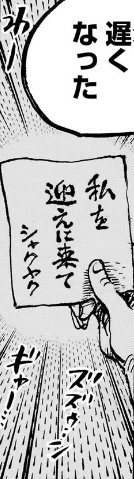 遅く
なった
わー
私を
迎えに来て
シャクヤク
ギャー!!
ズズゥ…ン